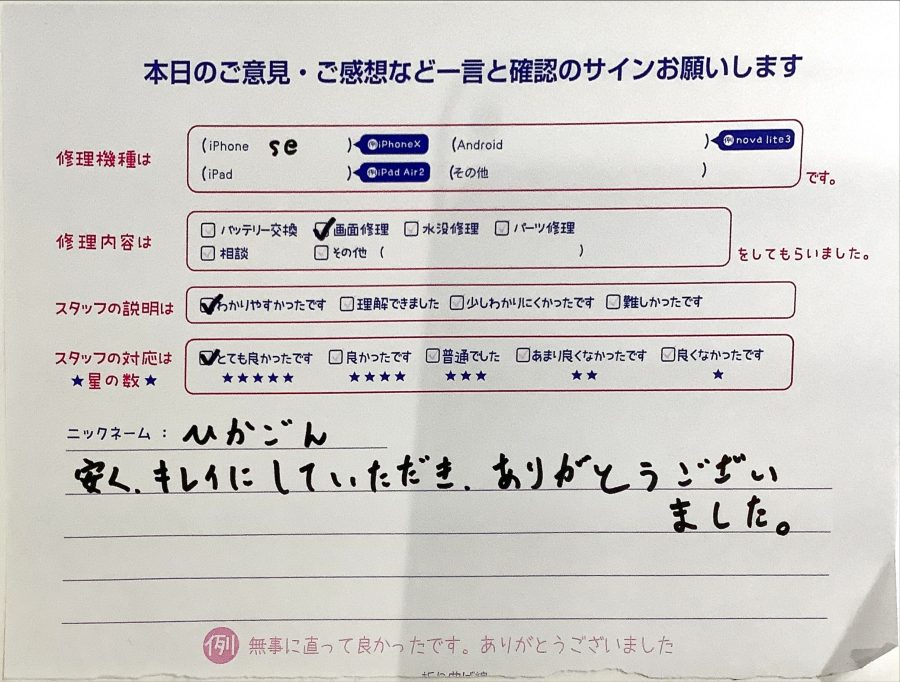 本日のご意見・ご感想など一言と確認のサインお願いします
修理機種は
(iPhone se ) 例iPhoneX (Android ) 例nova lite3
(iPad ) 例iPad Air2 (その他 )
です。
修理内容は
バッテリー交換 画面修理 水没修理 パーツ修理
相談 その他 ( )
をしてもらいました。
スタッフの説明は わかりやすかったです 理解できました 少しわかりにくかったです 難しかったです
スタッフの対応は とても良かったです 良かったです 普通でした あまり良くなかったです 良くなかったです
★星の数★ ★★★★★ ★★★★ ★★★ ★★ ★
ニックネーム: ひかごん
安く、キレイにしていただき、ありがとうござい
ました。
例 無事に直って良かったです。ありがとうございました